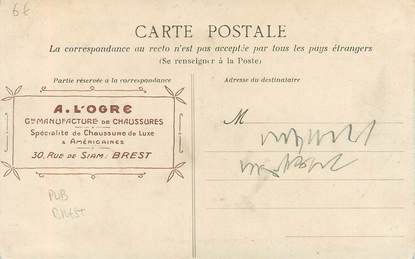 6€
CARTE POSTALE
La correspondance au recto n'est pas acceptée par tous les pays étrangers
(Se renseigner à la Poste)
Partie réservée à la correspondance
Adresse du destinataire
A. L'OGRE
Gde MANUFACTURE DE CHAUSSURES
Spécialité de Chaussure de Luxe
& AMÉRICAINES
30, RUE DE SIAM: BREST
M
PUB